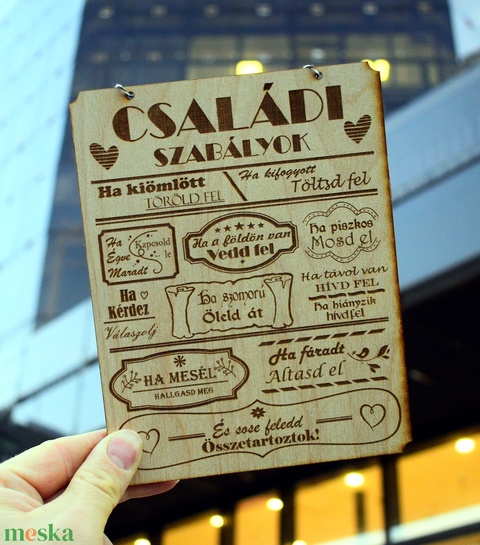 CSALÁDI
SZABÁLYOK
Ha kiömlött
TÖRÖLD FEL
Ha kifogyott
Töltsd fel
Ha
Égve
Maradt
Kapcsold
le
Ha a földön van
Vedd fel
Ha piszkos
Mosd el
Ha
Kérdez
Válaszolj
Ha szomorú
Öleld át
Ha távol van
HÍVD FEL
Ha hiányzik
hívdfel
HA MESÉL
HALLGASD MEG
Ha fáradt
Altasd el
És sose feledd
Összetartoztok!
meska